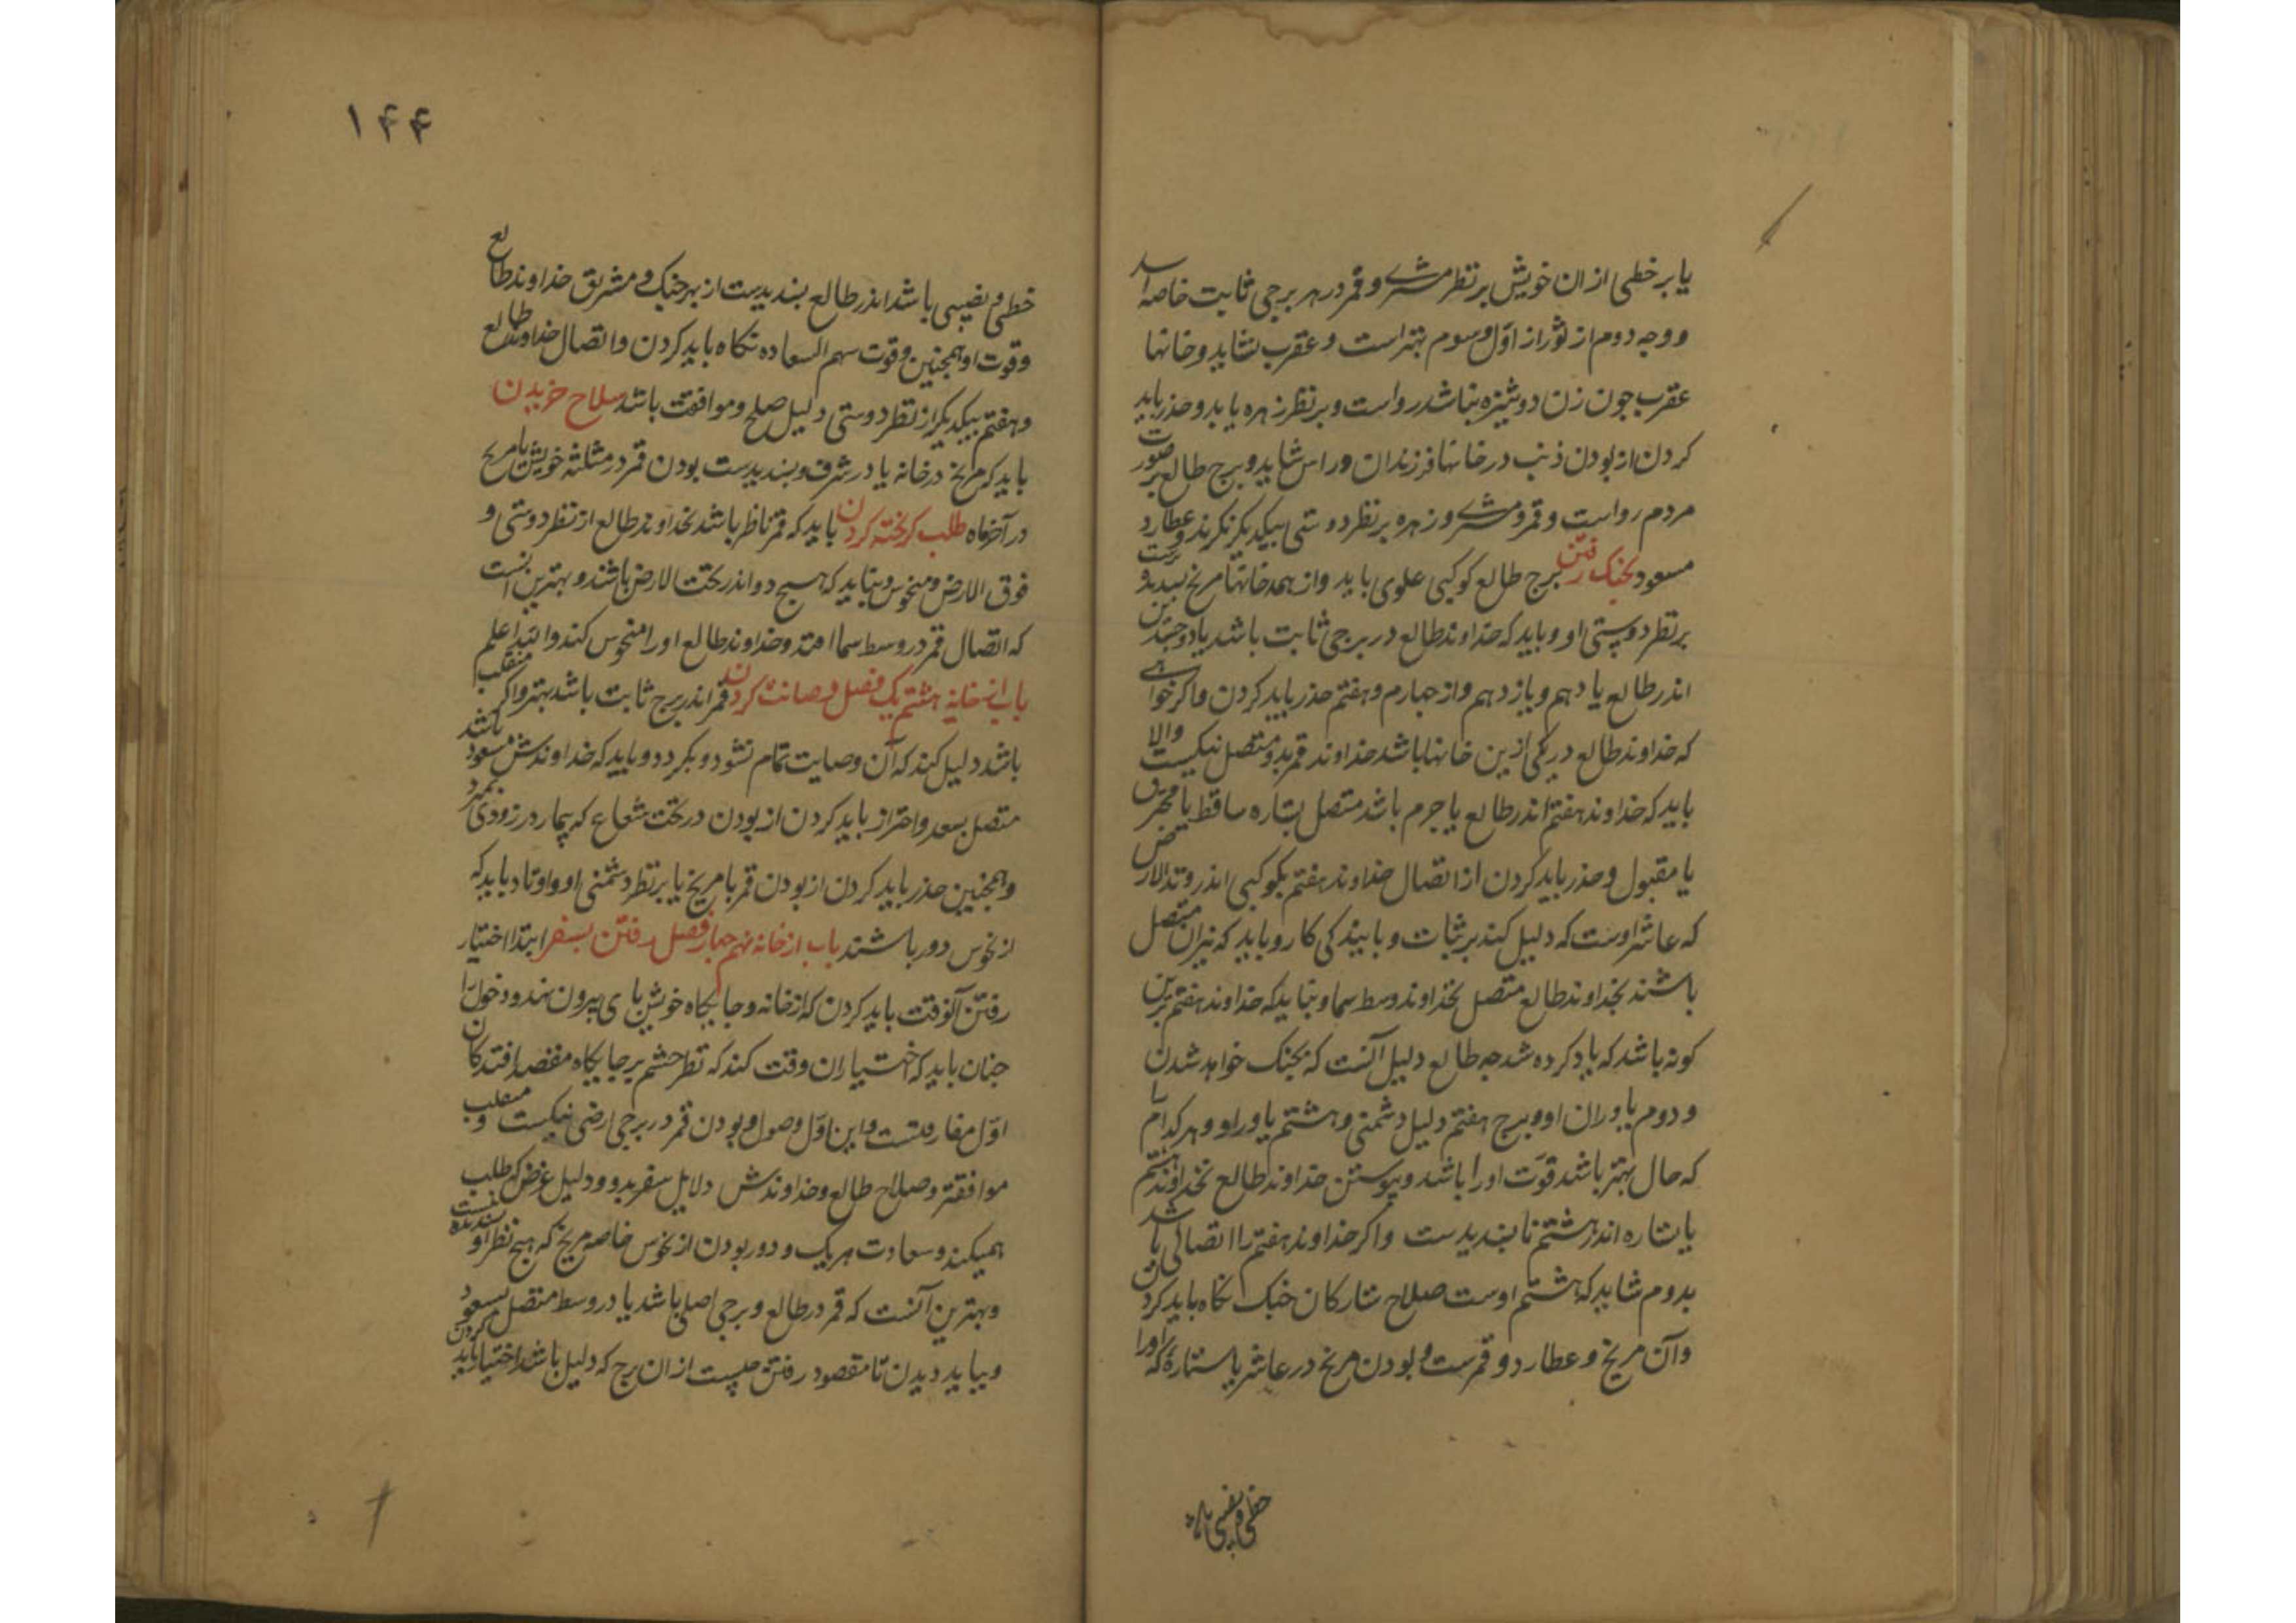 یا بر خطی از ان خویش بر نظر مشتری و قمر در هر برجی ثابت خاصه اسد
و وجه دوم از ثور از اوّل و سوم بهتر است و عقرب نشاید و خانها
عقرب چون زن دوشیزه نباشد رواست و بر نظر زهره باید و حذر باید
کردن از بودن ذنب در خانها فرزندان و راس شاید و برج طالع بر صورت
مردم رواست و قمر و مشتری و زهره بر نظر دوستی بیکدیکر نکرند و عطارد
مسعود بجنک رفتن برج طالع کوکبی علوی باید و از همه خانها مریخ
بر نظر دوستی او و باید که خداوند طالع در برجی ثابت باشد یا ذو جسدین
اندر طالع یا دهم و یازدهم و از چهارم و هفتم حذر باید کردن و اکر خواهی
که خداوند طالع در یکی ازین خانها باشد خداوند قمر بدو متصل نیکست والا
باید که خداوند هفتم اندر طالع یا جرم باشد متصل بستاره ساقط یا محترق
یا مقبول و حذر باید کردن از اتصال خداوند هفتم بکوکبی اندر وتد الارض
که عاشر اوست که دلیل کند بر ثبات و پایندکی کار و باید که نیران متصل
باشند بخداوند طالع متصل بخداوند وسط سما و نباید که خداوند هفتم برین
کونه باشد که یاد کرده شد چه طالع دلیل آنست که بجنک خواهد شدن
و دوم یاوران او و برج هفتم دلیل دشمنی و هشتم یاور او و هر کدام را
که حال بهتر باشد قوّت او را باشد و پیوستن خداوند طالع بخداوند هشتم
یا ستاره اندر هشتم نابسندیدست و اکر خداوند هفتم را اتصالی باشد
بدوم شاید که هشتم اوست صلاح ستارکان جنک نکاه باید کردن
و آن مریخ و عطارد و قمرست و بودن مریخ در عاشر یا ستارهٔ که او را
خطی و نصیبی باشد
۱۴۴
خطی و نصیبی باشد اندر طالع بسندیدست از بهر جنک و مشریق خداوند طالع
و قوت او همچنین و قوت سهم السعاده نکاه باید کردن و اتصال خداوند طالع
و هفتم بیکدیکر از نظر دوستی دلیل صلح و موافقت باشد سلاح خریدن
باید که مریخ در خانه یا در شرف و بسندیدست بودن قمر در مثلثه خویش با مریخ
در آخر ماه طلب کریخته کردن باید که قمر ناظر باشد بخداوند طالع از نظر دوستی و
فوق الارض و منحوس و نباید که هیچ دو اندر تحت الارض باشند و بهترین آنست
که اتصال قمر در وسط سما افتد و خداوند طالع او را منحوس کند والله اعلم
باب از خانه هشتم یک فصل وصایت کردن قمر اندر برج ثابت باشد بهتر و اکر منقلب
باشد دلیل کند که آن وصایت تمام نشود و بکردد و باید که خداوندش مسعود باشد
متصل بسعد و احتراز باید کردن از بودن در تحت شعاع که بیمار در زودی بمیرد
و همچنین حذر باید کردن از بودن قمر با مریخ یا بر نظر دشمنی او و اوتاد باید که
از نحوس دور باشند باب از خانه نهم چهار فصل رفتن بسفر ابتدا اختیار
رفتن آنوقت باید کردن که از خانه و جایکاه خویش پای بیرون نهد و دخول را
چنان باید که اختیار ان وقت کند که نظر چشم بر جایکاه مقصد افتد کان
اوّل مفارقتست و این اوّل وصول و بودن قمر در برجی ارضی نیکست و منقلب
موافقتر و صلاح طالع و خداوندش دلایل سفر بدو و دلیل غرض که طلب
همیکند و سعادت هر یک و دور بودن از نحوس خاصه مریخ که هیچ نظر او بسندیده نیست
و بهترین آنست که قمر در طالع و برجی اصلی باشد یا در وسط متصل بسعود
و بباید دیدن تا مقصود رفتن چیست از ان برج که دلیل باشد اختیار باید کردن